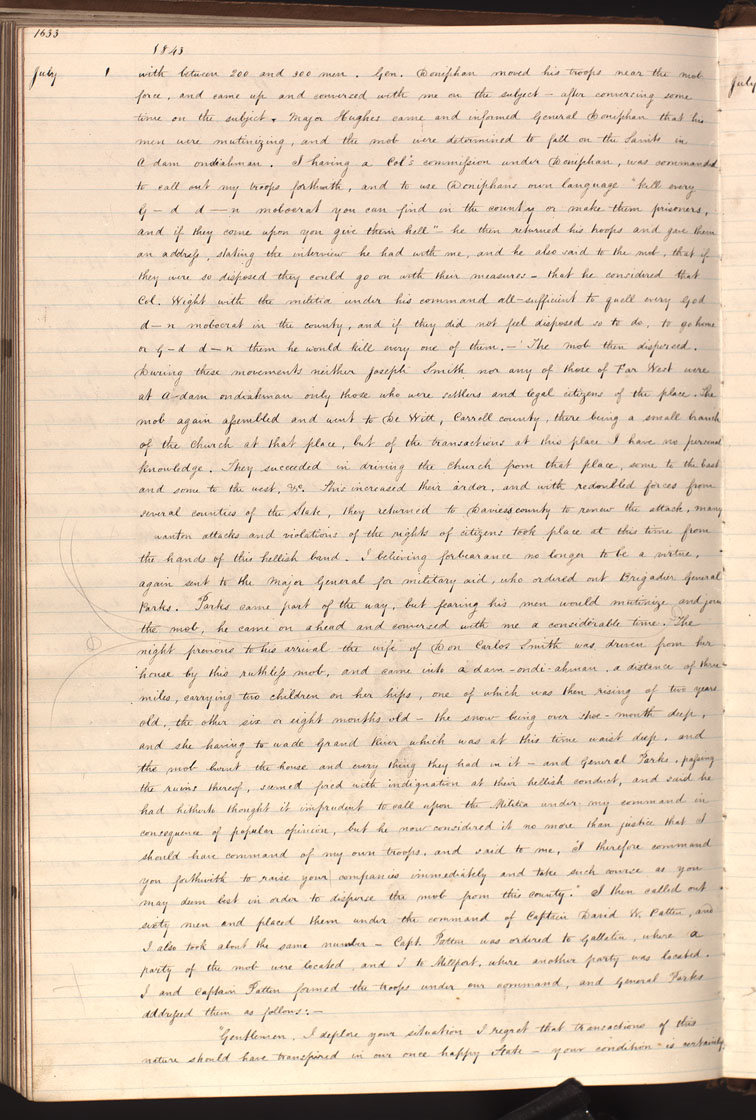 1633
1843
July 1 with between 200 and 300 men. Gen. Doniphan moved his troops near the mob
force, and came up and conversed with me on the subject — after conversing some
time on the subject, Major Hughes came and informed General Doniphan that his
men were mutinizing, and the mob were determined to fall on the Saints in
A dam ondiahman. I having a Col's commission under Doniphan, was commanded
to call out my troops forthwith, and to use Doniphans own language "kill every
G—d d—n mobocrat you can find in the county or make them prisoners,
and if they come upon you give them hell" — he then returned his troops and gave them
an address, stating the interview he had with me, and he also said to the mob, that if
they were so disposed they could go on with their measures — that he considered that
Col. Wight with the militia under his command all-sufficient to quell every God
d—n mobocrat in the county, and if they did not feel disposed so to do, to go home
or G—d d—n them he would kill every one of them. — The mob then dispersed.
During these movements neither Joseph Smith nor any of those of Far West were
at A-dam ondiahman only those who were settlers and legal citizens of the place. The
mob again assembled and went to De Witt, Carroll county, there being a small branch
of the Church at that place, but of the transactions at this place I have no personal
knowledge. They succeeded in driving the Church from that place, some to the east
and some to the west, &c. This increased their ardor, and with redoubled forces from
several counties of the State, they returned to Daviess county to renew the attack, many
wanton attacks and violations of the rights of citizens took place at this time from
the hands of this hellish band. I believing forbearance no longer to be a virtue,
again sent to the Major General for military aid, who ordered out Brigadier General
Parks. Parks came part of the way, but fearing his men would mutinize and join
the mob, he came on ahead and conversed with me a considerable time. The
night previous to his arrival the wife of Don Carlos Smith was driven from her
house by this ruthless mob, and came into a dam-ondi-ahman, a distance of three
miles, carrying two children on her hips, one of which was then rising of two years
old, the other six or eight months old — the snow being over shoe-mouth deep,
and she having to wade Grand River which was at this time waist deep, and
the mob burnt the house and every thing they had in it — and General Parks passing
the ruins thereof, seemed fired with indignation at their hellish conduct, and said he
had hitherto thought it imprudent to call upon the Militia under my command in
consequence of popular opinion, but he now considered it no more than justice that I
should have command of my own troops, and said to me, "I therefore command
you forthwith to raise your companies immediately and take such course as you
may deem best in order to disperse the mob from this county." I then called out
sixty men and placed them under the command of Captain David W. Patten, and
I also took about the same number — Capt. Patten was ordered to Gallatin, where a
party of the mob were located, and I to Millport, where another party was located.
I and Captain Patten formed the troops under our command, and General Parks
addressed them as follows: —
"Gentlemen, I deplore your situation I regret that transactions of this
nature should have transpired in our once happy State — your condition is certainly
July